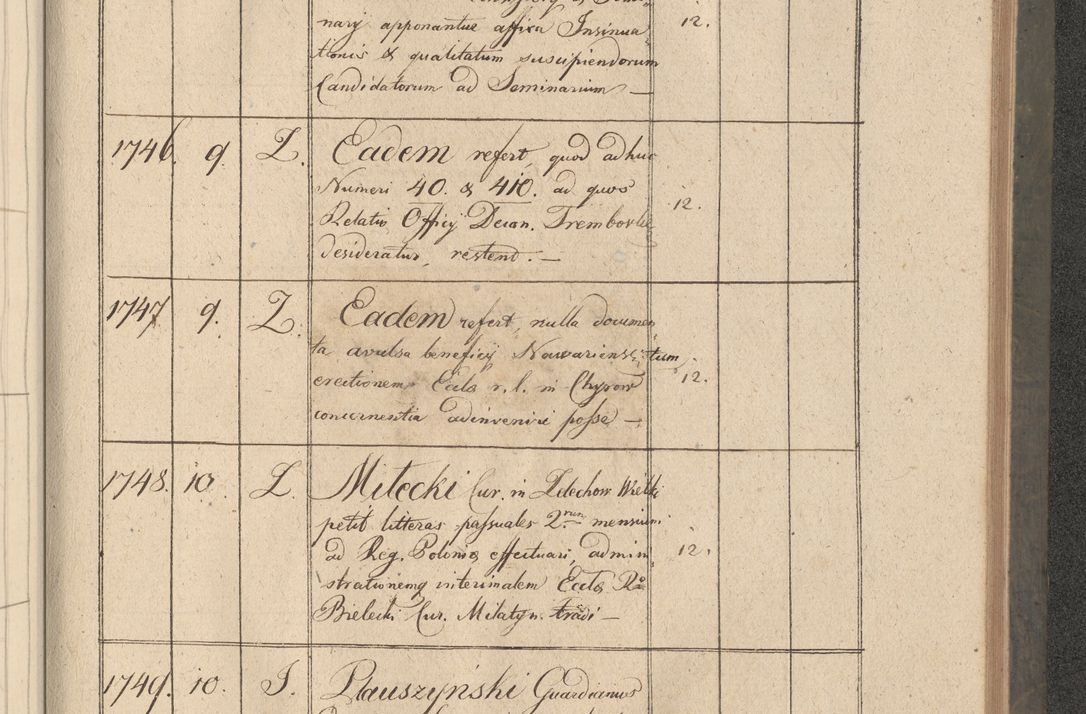 narij apponantur affixa Insinua-
tionis & qualitatum suscipiendorum
Candidatorum ad Seminarium — 12.
1746. 9. Z. Eadem refert, quod adhuc
Numeri 40. & 410. ad quos
Relatio Officij Decan. Trembovlie 12.
desideratur, restent. —
1747 9. Z. Eadem refert, nulla documen-
ta avulsa beneficij Nawariensi, tum
erectionem Eccls r. l. in Chyrow 12.
concernentia adinveniri posse —
1748. 10. L. Milecki Cur. in Zelechow Wielki
petit litteras passuales 2.rum mensium
ad Reg. Polonie effectuari, admin- 12.
strationemq interimalem Eccls Ro
Bielecki Cur. Milatyn. tradi —
1749. 10. I. Plauszyński Guardianus